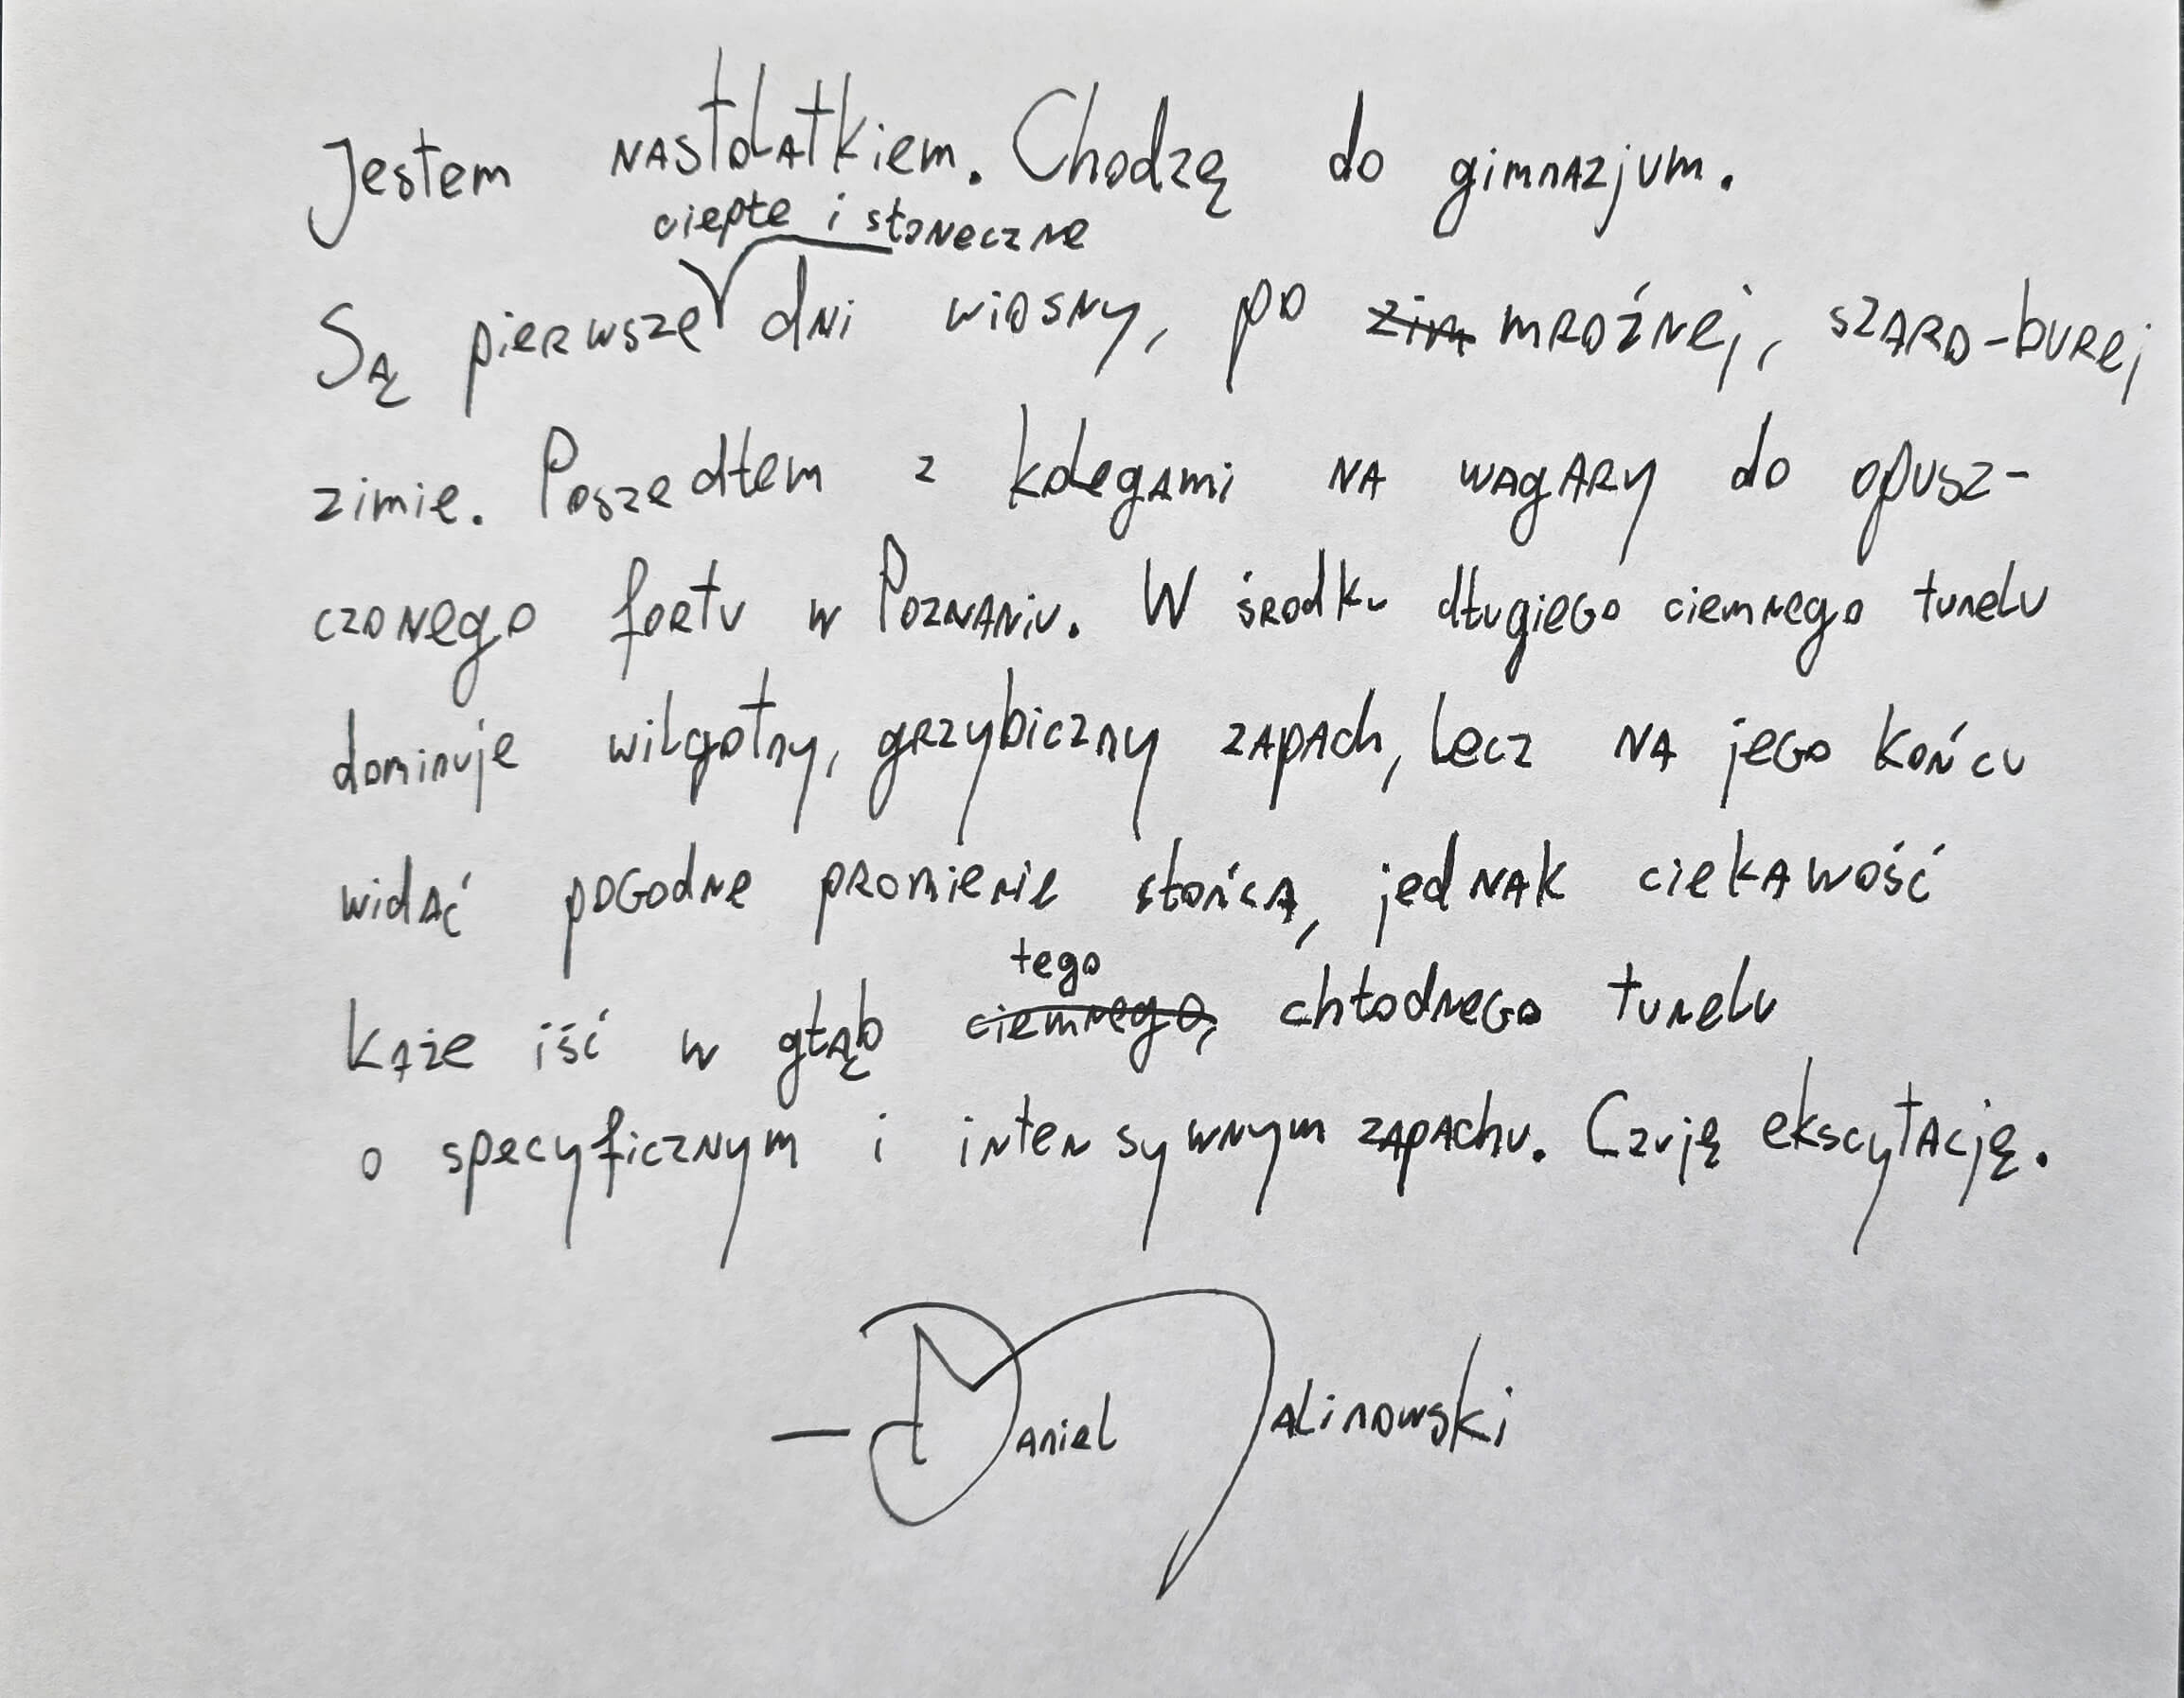 Jestem nastolatkiem. Chodzę do gimnazjum.
ciepłe i słoneczne
Są pierwsze dni wiosny, po zim mroźnej, szaro-burej
zimie. Poszedłem z kolegami na wagary do opusz-
czonego fortu w Poznaniu. W środku długiego ciemnego tunelu
dominuje wilgotny, grzybiczny zapach, lecz na jego końcu
widać pogodne promienie słońca, jednak ciekawość
tego
każe iść w głąb ciemnego, chłodnego tunelu
o specyficznym i intensywnym zapachu. Czuję ekscytację.
— Daniel Jalinowski